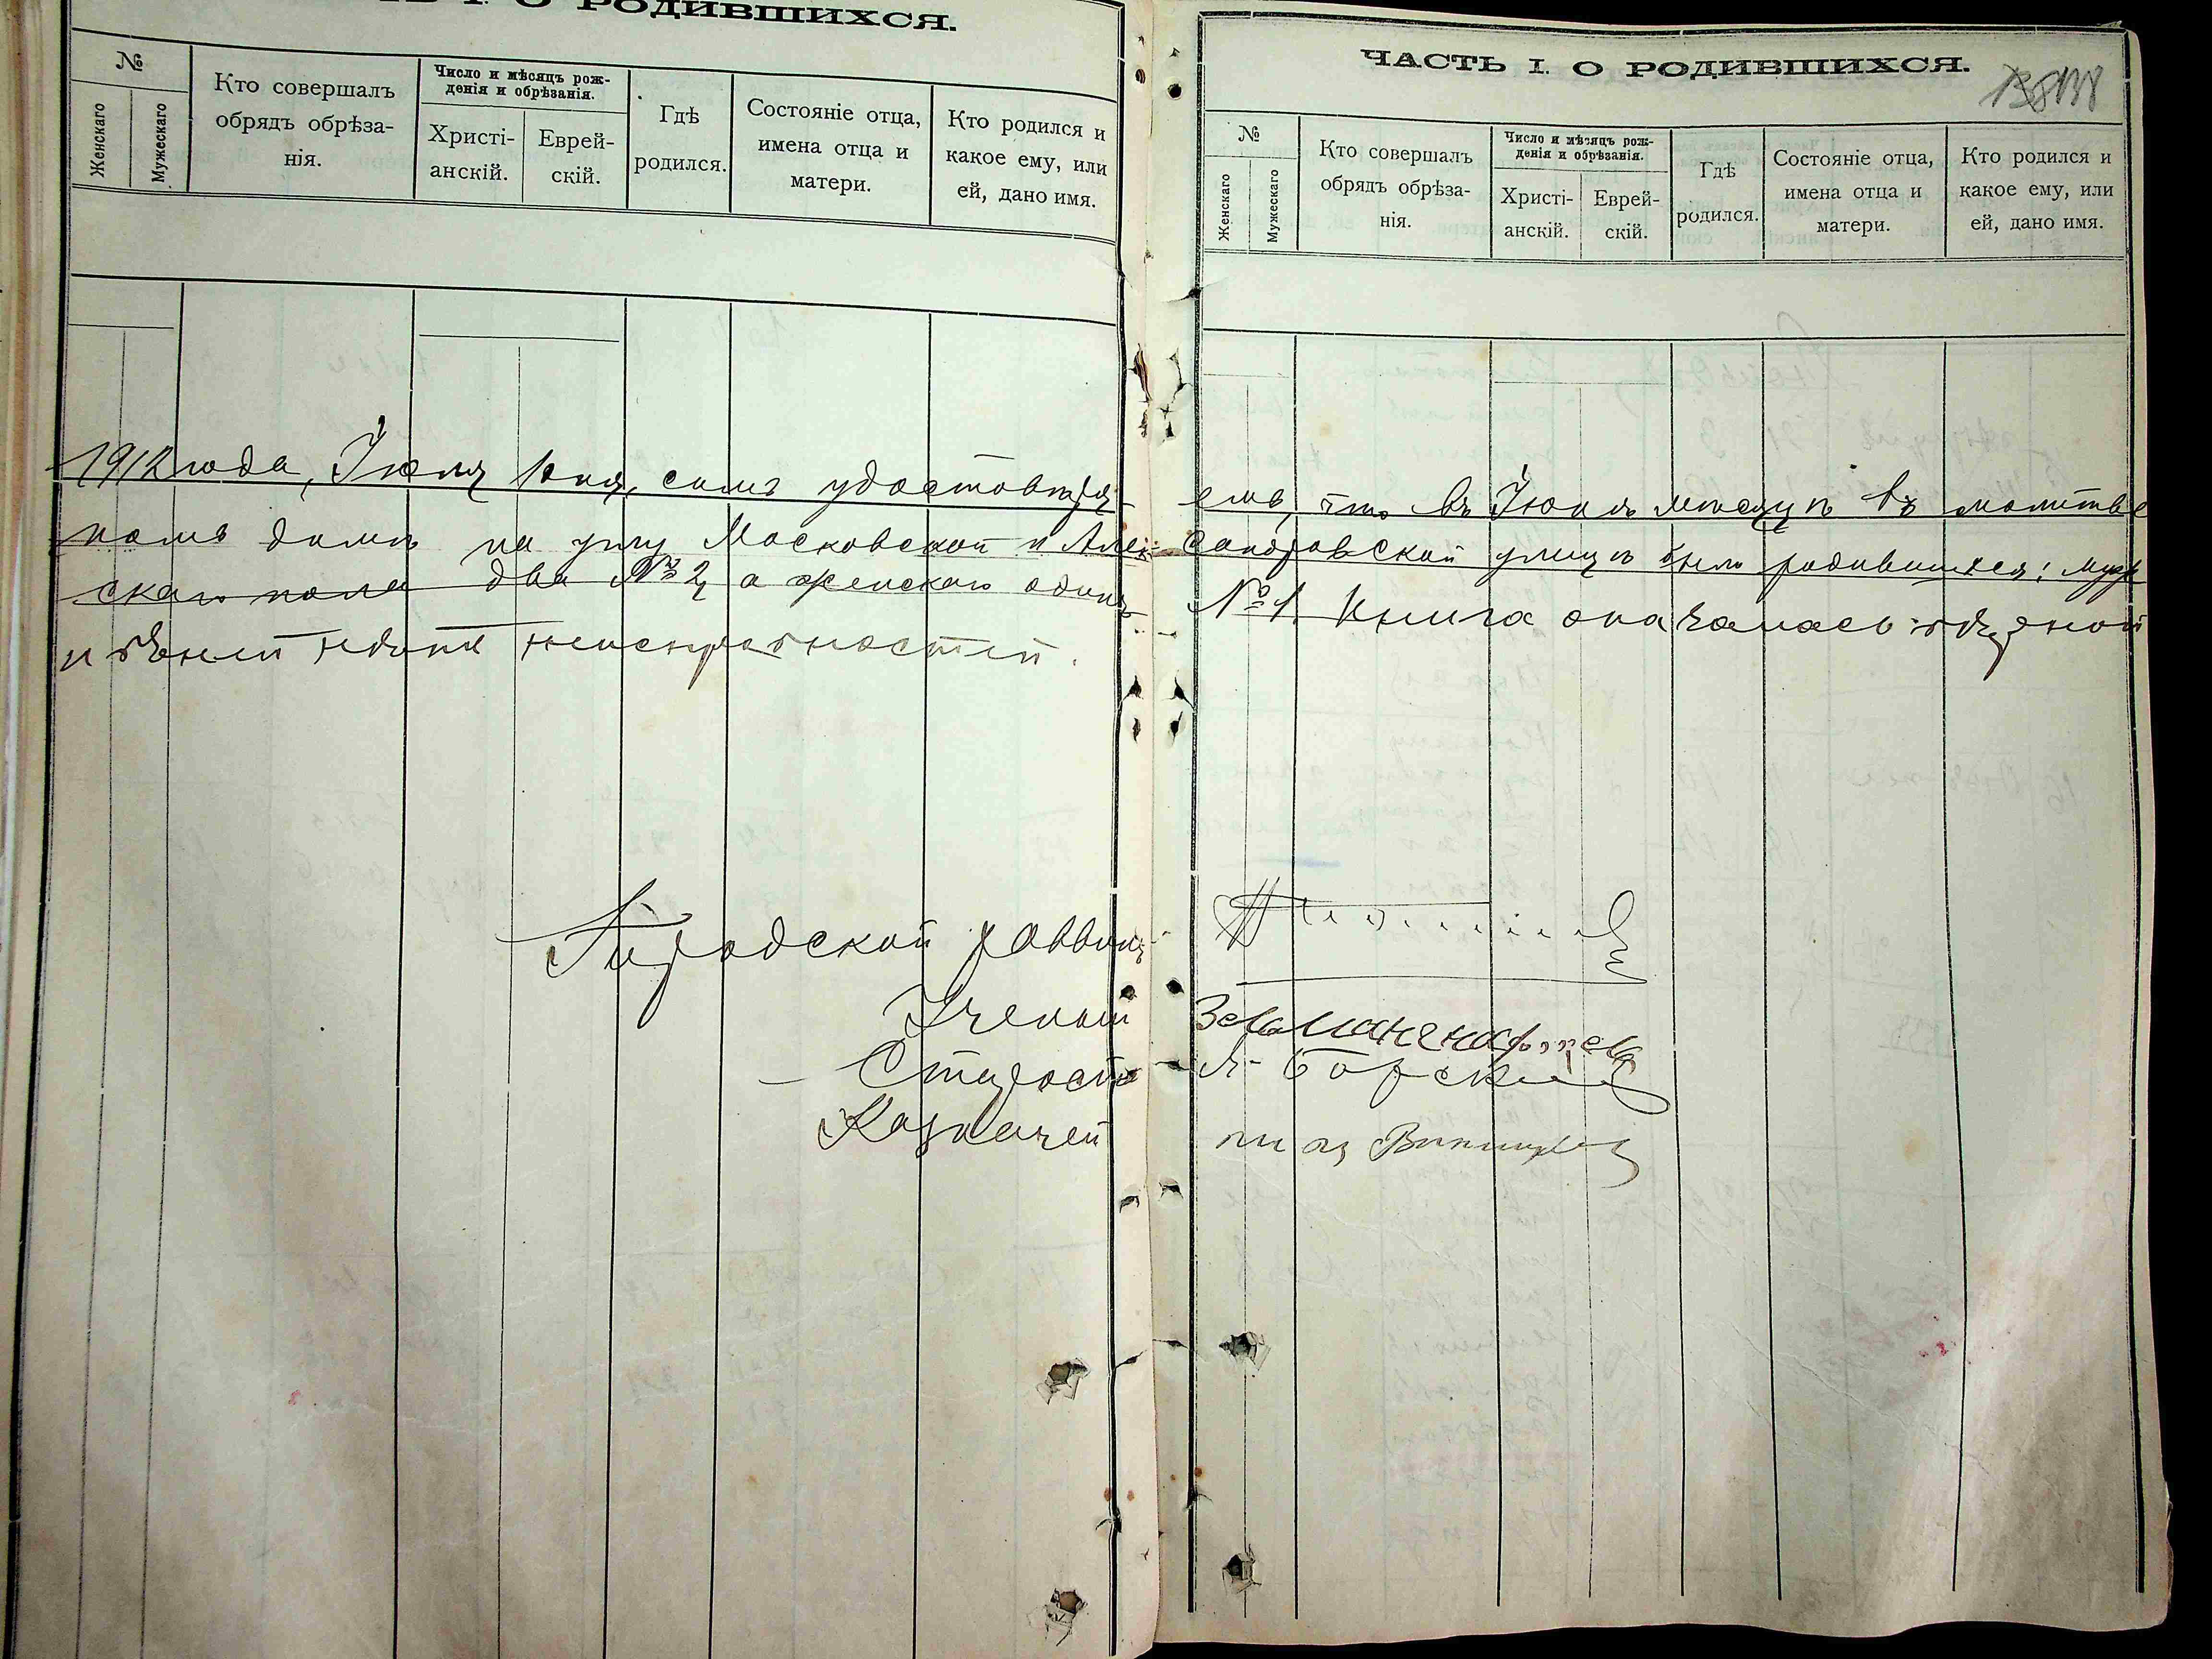 ЧАСТЬ I. О РОДИВШИХСЯ.
№
Женскаго
Мужескаго
Кто совершалъ
обрядъ обрѣза-
нія.
Число и мѣсяцъ рож-
денія и обрѣзанія.
Христі-
анскій.
Еврей-
скій.
Гдѣ
родился.
Состояніе отца,
имена отца и
матери.
Кто родился и
какое ему, или
ей, дано имя.
ЧАСТЬ I. О РОДИВШИХСЯ.
138
№
Женскаго
Мужескаго
Кто совершалъ
обрядъ обрѣза-
нія.
Число и мѣсяцъ рож-
денія и обрѣзанія.
Христі-
анскій.
Еврей-
скій.
Гдѣ
родился.
Состояніе отца,
имена отца и
матери.
Кто родился и
какое ему, или
ей, дано имя.
1912 года, Іюля 1 дня, симъ удостовѣря- емъ, что въ Іюнѣ мѣсяцѣ въ молитве
номъ домѣ на углу Московской и Алек- сандровской улицѣ было родившихся: муж
скаго пола два № 2, а женскаго одинъ № 1. Книга оказалась
и неисправностей.
Городской раввинъ
Ученый
Староста Борский
Казначей